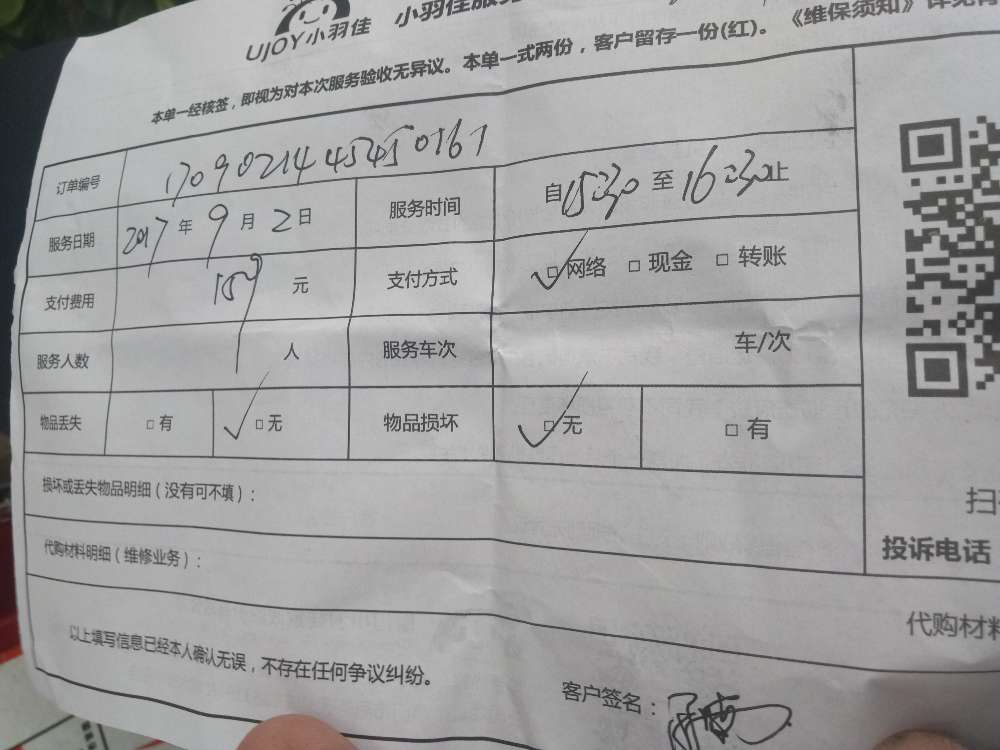 UJOY小羽佳 小羽佳服务
本单一经核签，即视为对本次服务验收无异议。本单一式两份，客户留存一份(红)。《维保须知》详见背
订单编号 170902144545450161
服务日期 2017 年 9 月 2 日 服务时间 自 15:30 至 16:30 止
支付费用 159 元 支付方式 □网络 □现金 □转账
服务人数 1 人 服务车次 车/次
物品丢失 □有 □无 物品损坏 □无 □有
损坏或丢失物品明细（没有可不填）：
扫
代购材料明细（维修业务）：
投诉电话
代购材料
以上填写信息已经本人确认无误，不存在任何争议纠纷。
客户签名：